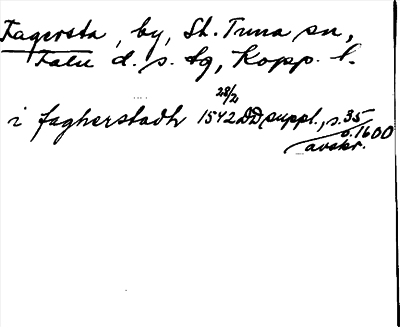 Fagersta, by, St. Tuna sn,
Falu d. s. tg, Kopp. l.
i fagherstadh 1542 28/2 DD suppl., s. 35
o. 1600
avskr.